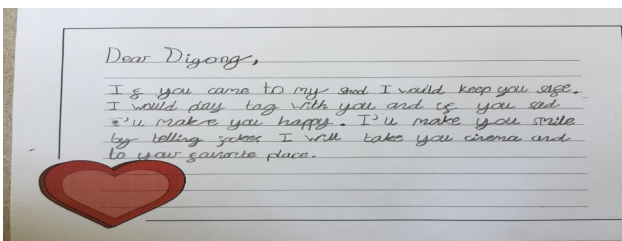 Dear Digong,
Is you came to my I would keep you sase.
I would play tag with you and is you sad
I'll make you happy. I'll make you smile
by telling jokes I will take you cinema and
to your savorite place.